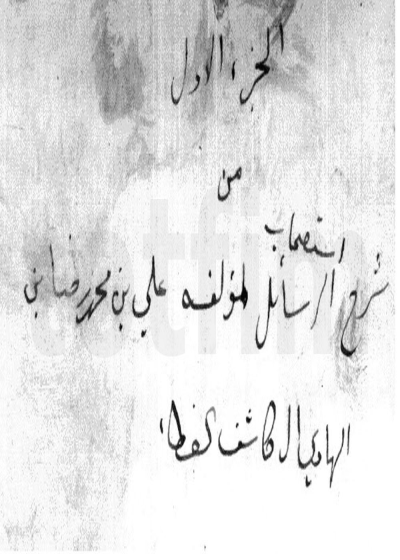 الجزء الاول
من
استصحاب
شرح الرسائل لمؤلفه علي بن محمد رضا بن
الهادي ال كاشف الغطاء